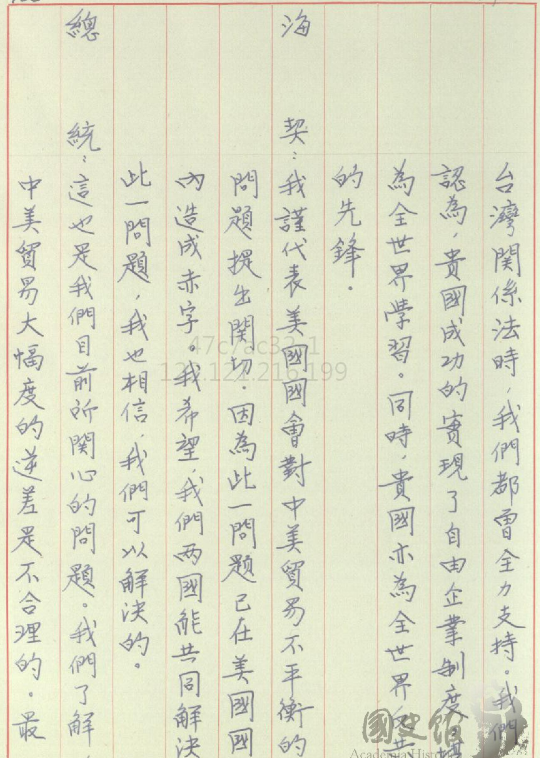 台灣關係法時，我們都曾全力支持。我們
認為，貴國成功的實現了自由企業制度
為全世界學習。同時，貴國亦為全世界反共
的先鋒。
海　契：我謹代表美國國會對中美貿易不平衡的
問題提出關切，因為此一問題已在美國國
內造成赤字。我希望，我們兩國能共同解決
此一問題，我也相信，我們可以解決的。
總　統：這也是我們目前所關心的問題。我們了解，
中美貿易大幅度的逆差是不合理的。最
國史館
Academia Histori